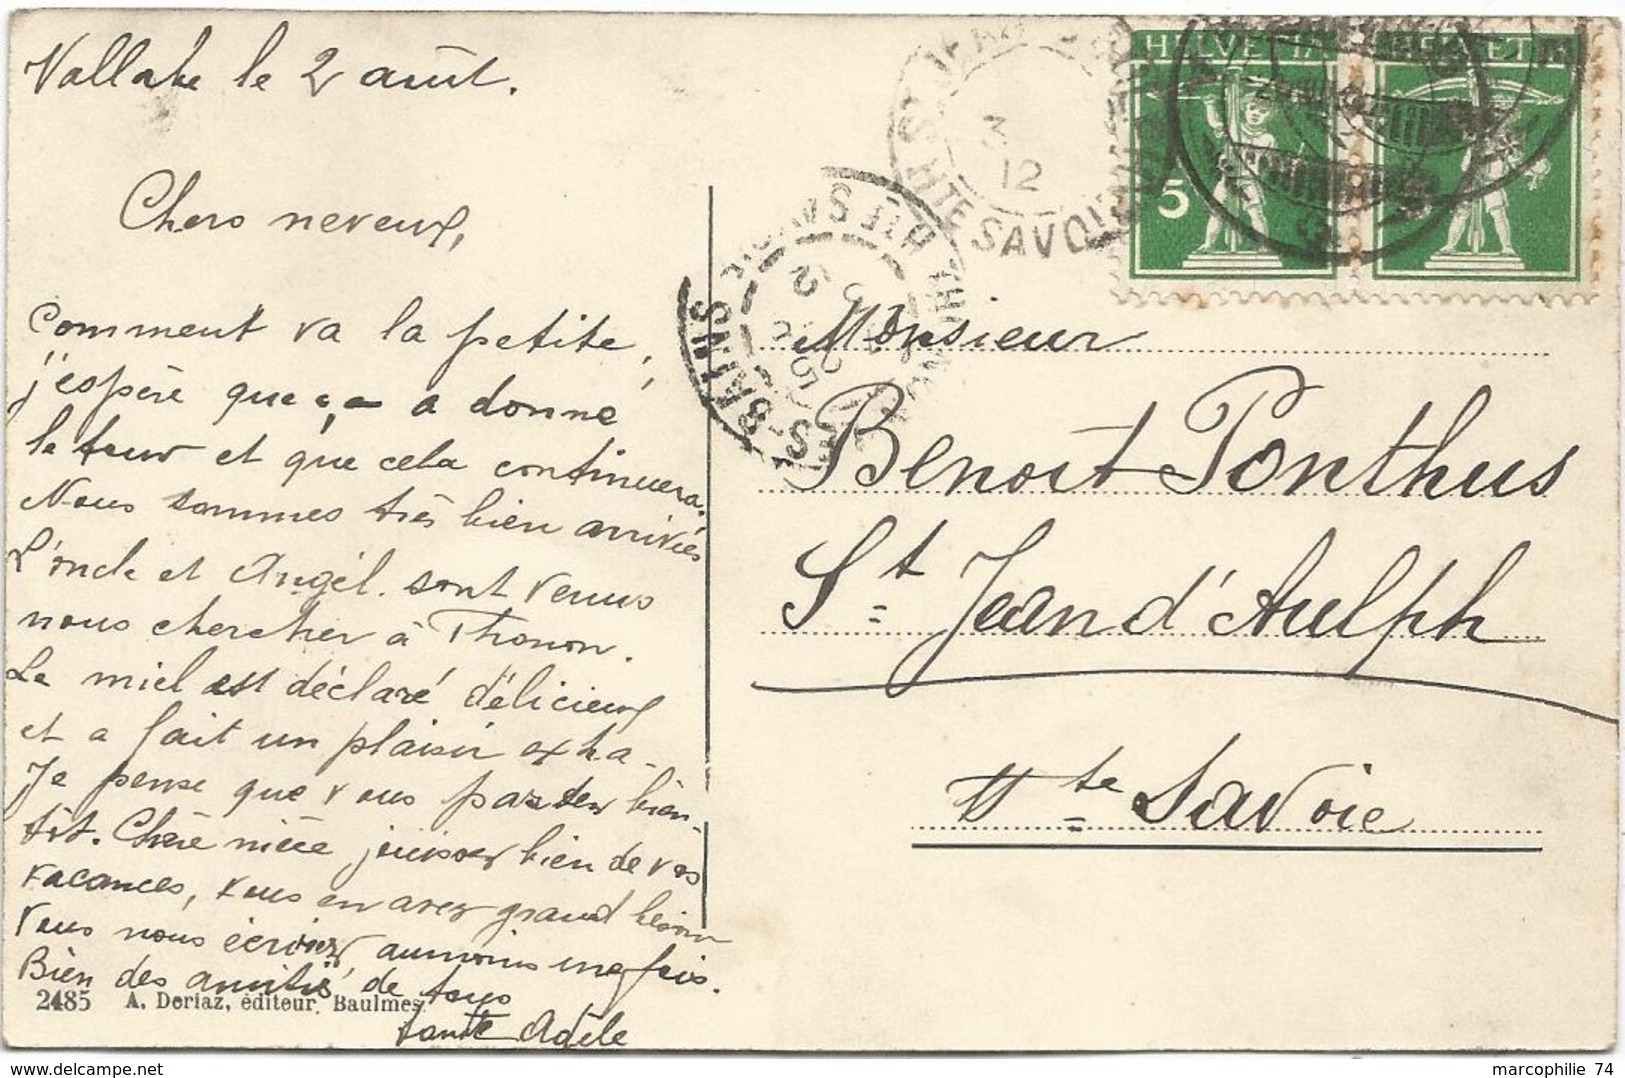 Vallabe le 2 août.
Chers neveux,
Comment va la petite,
j'espère que ça a donné
le tour et que cela continuera.
Nous sommes très bien arrivés
L'oncle et Angèl. sont venus
nous chercher à Thonon.
Le miel est déclaré délicieux
et a fait un plaisir extra.
Je pense que vous partez bien-
tôt. Chère nièce jouissez bien de vos
vacances, vous en avez grand besoin
Vous nous écrivez aumoins une fois.
Bien des amitiés de tous
tante Adèle
2485 A. Deriaz, éditeur, Baulmes
HELVETIA
5
HELVETIA
ST JEAN
HTE SAVOIE
3
12
THONON-LES-BAINS
HTE SAVOIE
Monsieur
Benoît Ponthus
St Jean d'Aulph
Hte Savoie
marcophilie 74